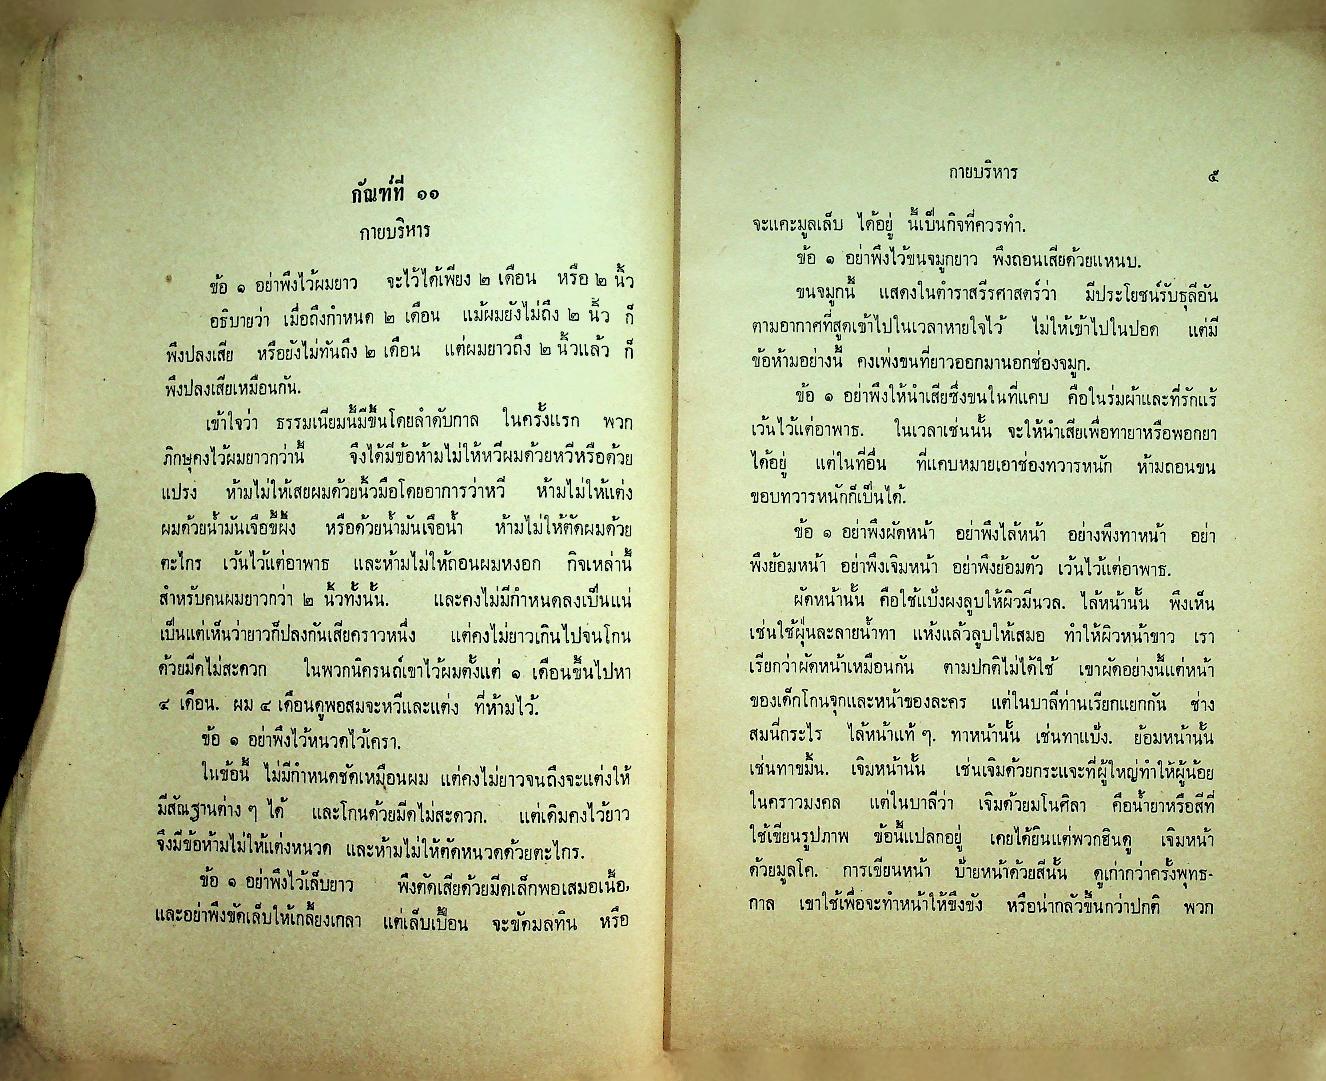 กัณฑ์ที่ ๑๑
กายบริหาร
ข้อ ๑ อย่าพึงไว้ผมยาว จะไว้ได้เพียง ๒ เดือน หรือ ๒ นิ้ว
อธิบายว่า เมื่อถึงกำหนด ๒ เดือน แม้ผมยังไม่ถึง ๒ นิ้ว ก็
พึงปลงเสีย หรือยังไม่ทันถึง ๒ เดือน แต่ผมยาวถึง ๒ นิ้วแล้ว ก็
พึงปลงเสียเหมือนกัน.
เข้าใจว่า ธรรมเนียมนี้มีขึ้นโดยลำดับกาล ในครั้งแรก พวก
ภิกษุคงไว้ผมยาวกว่านี้ จึงได้มีข้อห้ามไม่ให้หวีผมด้วยหวีหรือด้วย
แปรง ห้ามไม่ให้เสยผมด้วยนิ้วมือโดยอาการว่าหวี ห้ามไม่ให้แต่ง
ผมด้วยน้ำมันเจือขี้ผึ้ง หรือด้วยน้ำมันเจือน้ำ ห้ามไม่ให้ตัดผมด้วย
ตะไกร เว้นไว้แต่อาพาธ และห้ามไม่ให้ถอนผมหงอก กิจเหล่านี้
สำหรับคนผมยาวกว่า ๒ นิ้วทั้งนั้น. และคงไม่มีกำหนดลงเป็นแน่
เป็นแต่เห็นว่ายาวก็ปลงกันเสียคราวหนึ่ง แต่คงไม่ยาวเกินไปจนโกน
ด้วยมีดไม่สะดวก ในพวกนิครนถ์เขาไว้ผมตั้งแต่ ๑ เดือนขึ้นไปหา
๔ เดือน. ผม ๔ เดือนดูพอสมจะหวีและแต่ง ที่ห้ามไว้.
ข้อ ๑ อย่าพึงไว้หนวดไว้เครา.
ในข้อนี้ ไม่มีกำหนดชัดเหมือนผม แต่คงไม่ยาวจนถึงจะแต่งให้
มีสัณฐานต่าง ๆ ได้ และโกนด้วยมีดไม่สะดวก. แต่เดิมคงไว้ยาว
จึงมีข้อห้ามไม่ให้แต่งหนวด และห้ามไม่ให้ตัดหนวดด้วยตะไกร.
ข้อ ๑ อย่าพึงไว้เล็บยาว พึงตัดเสียด้วยมีดเล็กพอเสมอเนื้อ,
และอย่าพึงขัดเล็บให้เกลี้ยงเกลา แต่เล็บเปื้อน จะขัดมลทิน หรือ
กายบริหาร ๕
จะแคะมูลเล็บ ได้อยู่ นี้เป็นกิจที่ควรทำ.
ข้อ ๑ อย่าพึงไว้ขนจมูกยาว พึงถอนเสียด้วยแหนบ.
ขนจมูกนี้ แสดงในตำราสรีรศาสตร์ว่า มีประโยชน์รับธุลีอัน
ตามอากาศที่สูดเข้าไปในเวลาหายใจไว้ ไม่ให้เข้าไปในปอด แต่มี
ข้อห้ามอย่างนี้ คงเพ่งขนที่ยาวออกมานอกช่องจมูก.
ข้อ ๑ อย่าพึงให้นำเสียซึ่งขนในที่แคบ คือในร่มผ้าและที่รักแร้
เว้นไว้แต่อาพาธ. ในเวลาเช่นนั้น จะให้นำเสียเพื่อทายาหรือพอกยา
ได้อยู่ แต่ในที่อื่น ที่แคบหมายเอาช่องทวารหนัก ห้ามถอนขน
ขอบทวารหนักก็เป็นได้.
ข้อ ๑ อย่าพึงผัดหน้า อย่าพึงไล้หน้า อย่างพึงทาหน้า อย่า
พึงย้อมหน้า อย่าพึงเจิมหน้า อย่าพึงย้อมตัว เว้นไว้แต่อาพาธ.
ผัดหน้านั้น คือใช้แป้งผงลูบให้ผิวมีนวล. ไล้หน้านั้น พึงเห็น
เช่นใช้ฝุ่นละลายน้ำทา แห้งแล้วลูบให้เสมอ ทำให้ผิวหน้าขาว เรา
เรียกว่าผัดหน้าเหมือนกัน ตามปกติไม่ได้ใช้ เขาผัดอย่างนี้แต่หน้า
ของเด็กโกนจุกและหน้าของละคร แต่ในบาลีท่านเรียกแยกกัน ช่าง
สมนี่กระไร ไล้หน้าแท้ ๆ. ทาหน้านั้น เช่นทาแป้ง. ย้อมหน้านั้น
เช่นทาขมิ้น. เจิมหน้านั้น เช่นเจิมด้วยกระแจะที่ผู้ใหญ่ทำให้ผู้น้อย
ในคราวมงคล แต่ในบาลีว่า เจิมด้วยมโนศิลา คือน้ำยาหรือสีที่
ใช้เขียนรูปภาพ ข้อนี้แปลกอยู่ เคยได้ยินแต่พวกฮินดู เจิมหน้า
ด้วยมูลโค. การเขียนหน้า บ้ายหน้าด้วยสีนั้น ดูเก่ากว่าครั้งพุทธ-
กาล เขาใช้เพื่อจะทำหน้าให้ขึงขัง หรือน่ากลัวขึ้นกว่าปกติ พวก